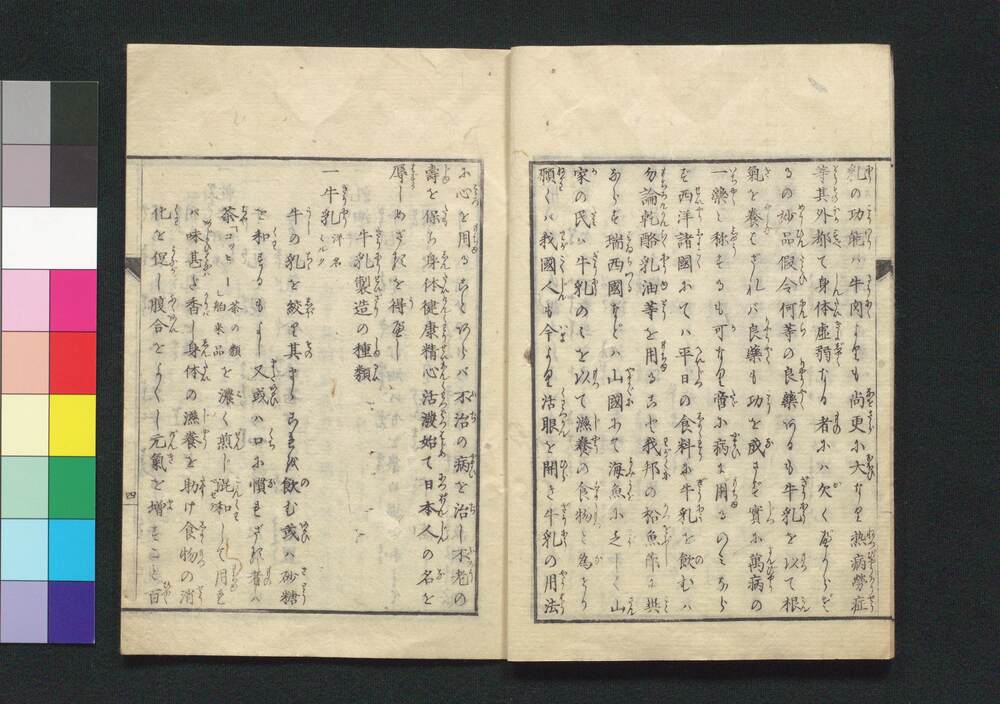 乳の功能ハ牛肉よりも尚更に大なり熱病労症
等其外都て身体虚弱なる者にハ欠くべからざ
るの妙品假令何等の良薬あるも牛乳を以て根
氣を養はざれバ良薬も功を成さず實に萬病の
一薬と称するも可なり啻に病に用るのみなら
ず西洋諸國にてハ平日の食料に牛乳を飲むハ
勿論乾酪乳油等を用ること我邦の松魚節に異
ならず瑞西國などハ山國にて海魚に乏しく山
家の民ハ牛乳のみを以て滋養の食物と為せり
願くハ我國人も今より活眼を開き牛乳の用法
に心を用ることあらバ不治の病を治し不老の
壽を保ち身体健康精心活溌始て日本人の名を
辱しめざるを得べし
牛乳製造の種類
一牛乳 洋名ミルク
牛の乳を絞り其まゝこれを飲む或ハ砂糖
を和するもよし又或ハ口に慣れざる者ハ
茶「コッヒー」茶の類舶来品を濃く煎じ混和して用れ
バ味甚よ香し身体の滋養を助け食物の消
化を促し腹合をよくし元氣を増すこと百
四